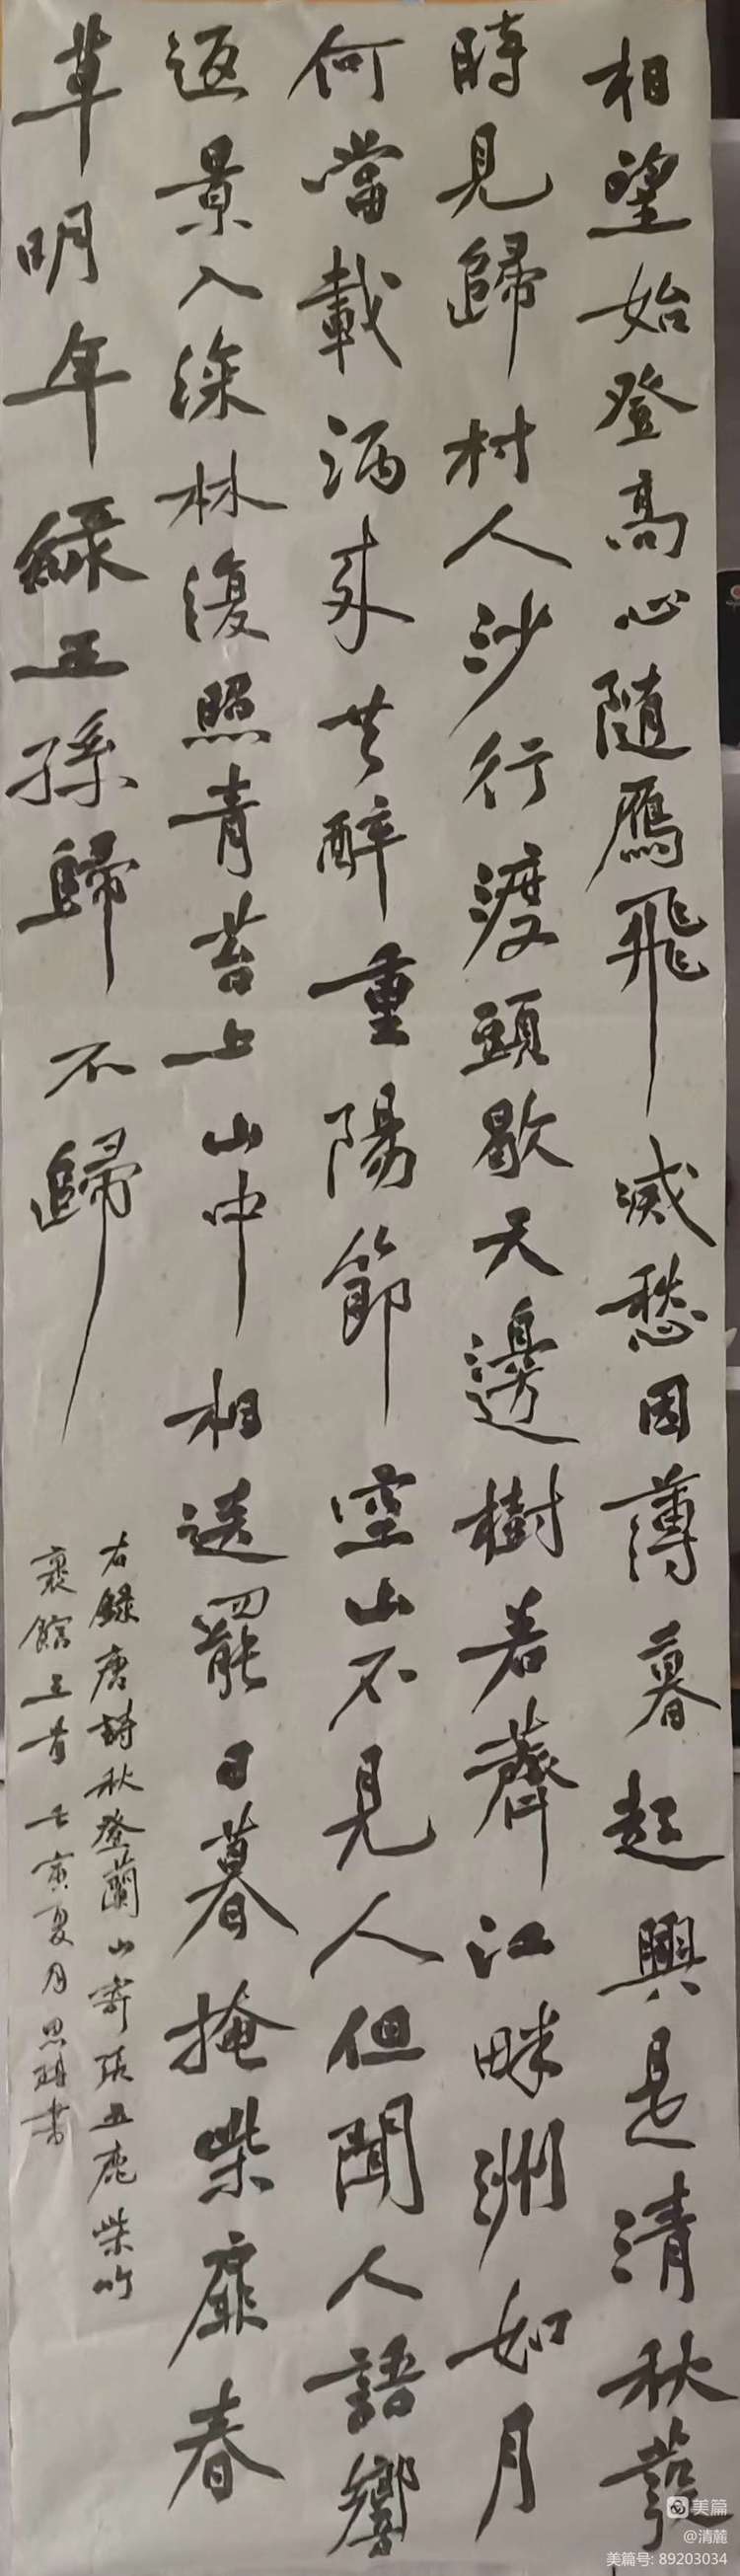 相望始登高心隨鴈飛滅愁因薄暮起興是清秋發
時見歸村人沙行渡頭歇天邊樹若薺江畔洲如月
何當載酒來共醉重陽節空山不見人但聞人語響
返景入深林復照青苔上山中相送罷日暮掩柴扉春
草明年綠王孫歸不歸
右錄唐詩秋登蘭山寄張五鹿柴竹
裏館 壬寅夏月思 書
美篇
@清麓
美篇号: 89203034